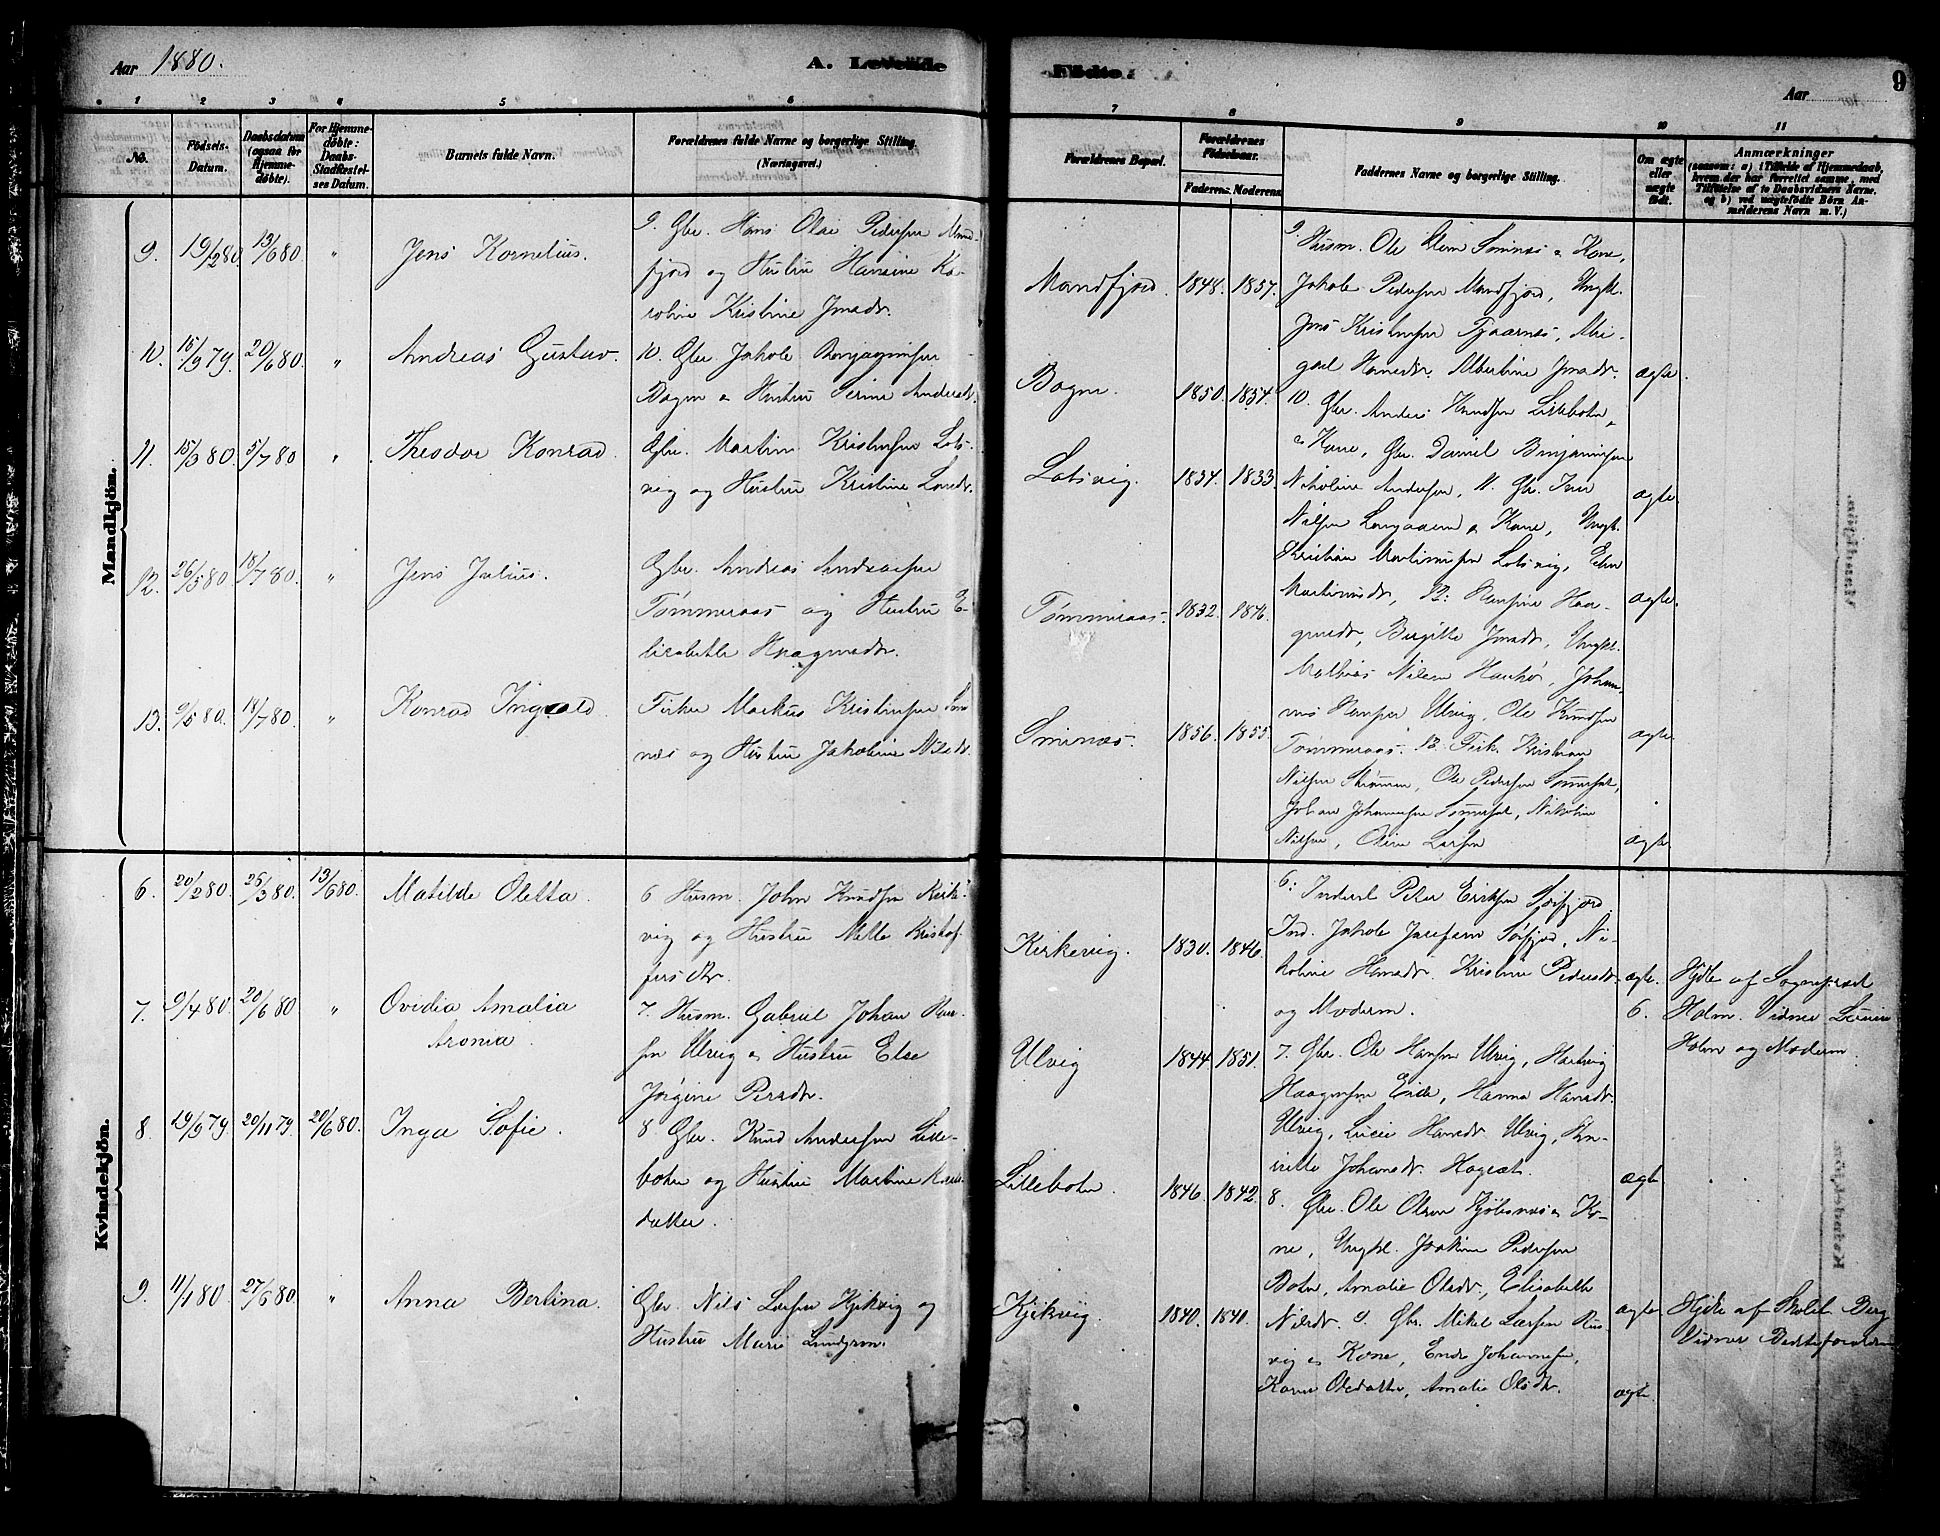 Aar 1880.
A. Levende
Fødte.
Aar
9
1 2 3 4 5 6 7 8 9 10 11
No.
Födsels-Datum.
Daabsdatum (ogsaa for Hjemmedöbte).
For Hjemmedöbte: Daabs-Stadfæstelses Datum.
Barnets fulde Navn.
Forældrenes fulde Navne og borgerlige Stilling. (Næringsvei.)
Forældrenes Bopæl.
Forældrenes Födselsaar.
Faderens. Moderens.
Faddernes Navne og borgerlige Stilling.
Om ægte eller uægte födt.
Anmærkninger
(saasom: a) i Tilfælde af Hjemmedaab, hvem der har forrettet samme, med Tilföielse af to Daabsvidners Navne, og b) ved uægtefödte Börn Anmelderens Navn m. V.)
Mandkjön.
9. 19/2 80 13/6 80 " Jens Kornelius.
9. Gbr. Hans Olai Pedersen Mand-
fjord og Hustru Hansine Ka-
roline Kristine Jensdr.
Mandfjord. 1848. 1857.
9. Husm. Ole Elem Sminæs & Kone,
Jakob Pedersen Mandfjord, Ungk.
Jens Kristensen Tjaarnes, Abi-
gael Hansdr. Albertine Jensdr.
ægte.
10. 15/9 79. 20/6 80. " Andreas Gustav.
10. Gbr. Jakob Benjaminsen
Bogen & Hustru Serine Andersdr.
Bogen. 1850. 1854.
10. Gbr. Anders Knudsen Lillebotn,
& Kone, Gbr. Daniel Benjaminsen
Nikoline Andersen,
ægte.
11. 15/3 80. 5/7 80 " Theodor Konrad.
Gbr. Martin Kristensen Lots-
vig og Hustru Kristine Larsdr.
Lotsvig. 1834. 1833.
11. Gbr. Iver
Nilsen Langaaren & Kone, Ungk.
Kristian Martinusen Lotsvig, Elen
Martinusdr,
ægte.
12. 26/5 80 18/7 80. " Jens Julius.
Gbr. Andreas Andreasen
Tømmeraas og Hustru E-
lisabeth Haagensdr.
Tømmeraas. 1832. 1846.
12. Hansine Haa-
gensdr, Birgitte Jensdr, Ungkl.
Mathias Nilsen Havhø, Johan-
nes Hansen Ulvig, Ole Knudsen
Tømmeraas.
ægte
13. 9/5 80. 18/7 80. " Konrad Ingvald.
Fisker Markus Kristensen Smi-
næs og Hustru Jakobine Nilsdr.
Sminæs. 1856. 1855.
13. Fisk. Kristian
Nilsen Strømmen, Ole Pedersen Sommerset,
Johan Johannesen Sommerset, Nikoline
Nilsen, Oline Larsen
ægte
Kvindekjön.
6. 20/2 80. 26/3 80. 13/6 80. Matilde Oletta.
6 Husm. John Knudsen Kirke-
vig og Hustru Mette Kristof-
fersdtr.
Kirkevig. 1830. 1846.
6: Inderst Peter Eriksen Sørfjord,
Ind. Jakob Josefsen Sørfjord, Ni-
koline Hansdr. Kristine Pedersdr.
og Moderen.
ægte. Hjdbt af Sognepræst
6. Holm. Vidner Lovise
Holm og Moderen.
7. 9/4 80. 20/6 80 " Ovidia Amalia
Aronia.
7. Husm. Gabriel Johan Han-
sen Ulvig & Hustru Else
Jørgine Persdtr.
Ulvig 1844. 1851.
7. Gbr. Ole Hansen Ulvig, Hartvig
Haagensen Eide, Hanna Hansdr.
Ulvig, Lucie Hansdr Ulvig, An-
nette Johansdr. Hagesæt.
ægte
8. 19/9 79. 20/11 79. 20/6 80. Inga Sofie.
8 Gbr. Knud Andersen Lille-
botn og Hustru Martine Knuds-
datter.
Lillebotn. 1846. 1842.
8. Gbr. Ole Olsen Kjøbsnæs & Ko-
ne, Ungkl. Joakim Pedersen
Botn, Amalie Olsdr, Elisabeth
Nilsdr.
ægte Hjdbt af Skolel. Berg
Vidner Bedsteforældrene
9. 11/1 80. 27/6 80. " Anna Berlina.
Gbr. Nils Larsen Kjikvig og
Hustru Marie Lundgren.
Kjikvig. 1840. 1841.
9. Gbr. Mikel Larsen Rus-
vig & Kone, Endre Johannesen,
Karen Olsdatter, Amalie Olsdtr.
ægte.